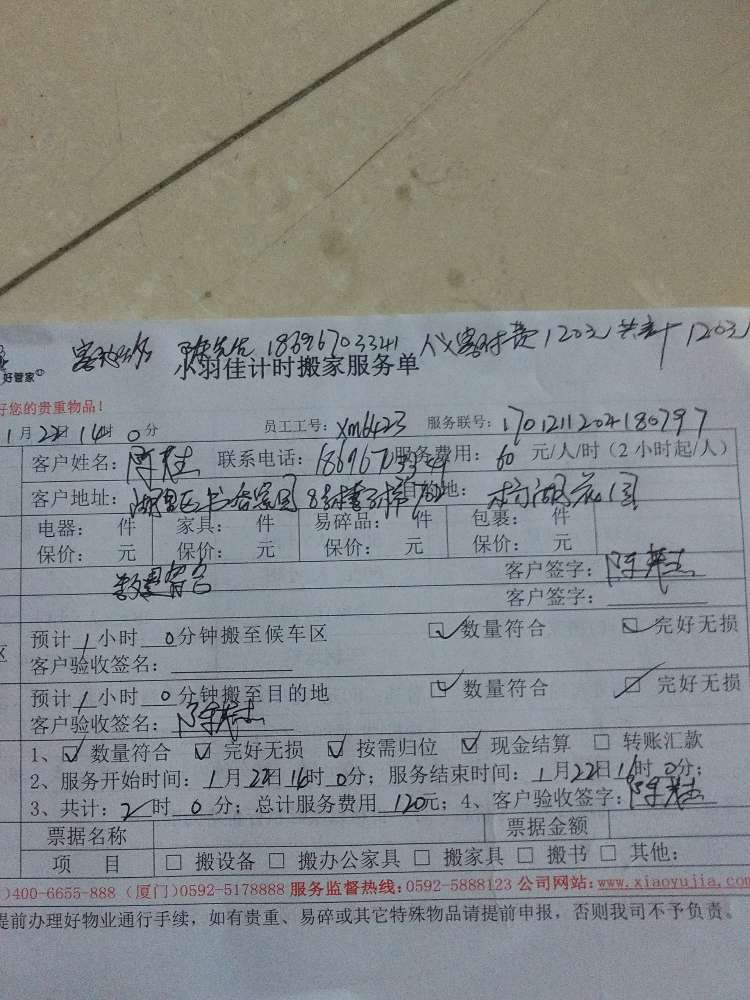 陈先生 18696703341 付费120元 共计120元
好管家
小羽佳计时搬家服务单
好您的贵重物品!
1月22日14时0分 员工工号:xm6423 服务联号:1701211204180797
客户姓名:陈 联系电话:18696703341 服务费用:60元/人/时(2小时起/人)
客户地址:湖里区 目的地:湖花园
电器: 件 家具: 件 易碎品: 件 包裹: 件
保价: 元 保价: 元 保价: 元 保价: 元
数量符合 客户签字:陈
客户签字:
预计1小时0分钟搬至候车区 数量符合 完好无损
区 客户验收签名:
预计1小时0分钟搬至目的地 数量符合 完好无损
客户验收签名:陈
1、数量符合 完好无损 按需归位 现金结算 转账汇款
2、服务开始时间:1月22日16时0分;服务结束时间:1月22日1时0分;
3、共计:2时0分;总计服务费用120元;4、客户验收签字:陈
票据名称 票据金额
项 目 搬设备 搬办公家具 搬家具 搬书 其他:
)400-6655-888 (厦门)0592-5178888 服务监督热线:0592-5888123 公司网站:www.xiaoyujia.com
提前办理好物业通行手续,如有贵重、易碎或其它特殊物品请提前申报,否则我司不予负责。